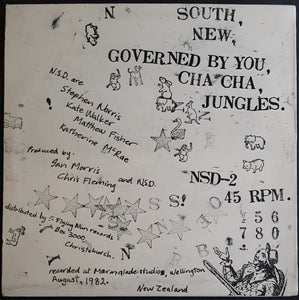 N SOUTH,
NEW,
GOVERNED BY YOU,
CHA CHA,
JUNGLES.
N.S.D. are
Stephen Norris
Kate Walker
Matthew Fisher
Katherine McRae
Produced by:
Ian Morris
Chris Fleming and NSD.
NSD-2
45 RPM.
distributed by :- Flying Nun records
Box 3000
Christchurch.
recorded at Marmalade studios, Wellington
August, 1982.
New Zealand